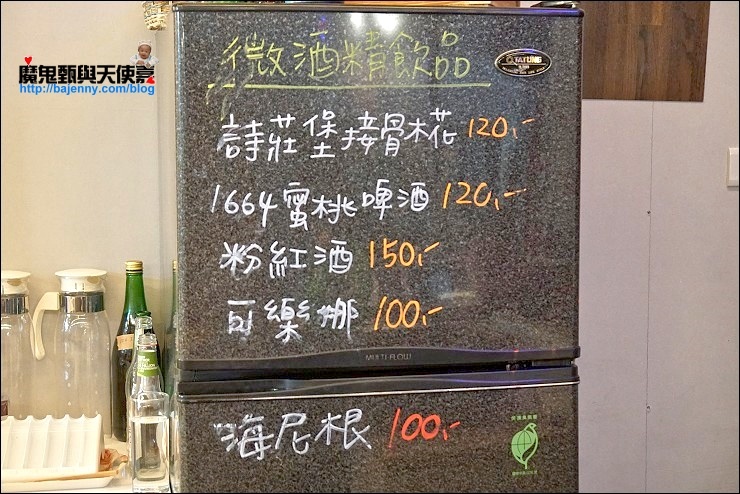 魔鬼甄與天使嘉
http://bajenny.com/blog
微酒精飲品
TATUNG
詩莊堡接骨木花 120,-
1664蜜桃啤酒 120,-
粉紅酒 150,-
可樂娜 100,-
MULTI-FLOW
海尼根 100,-